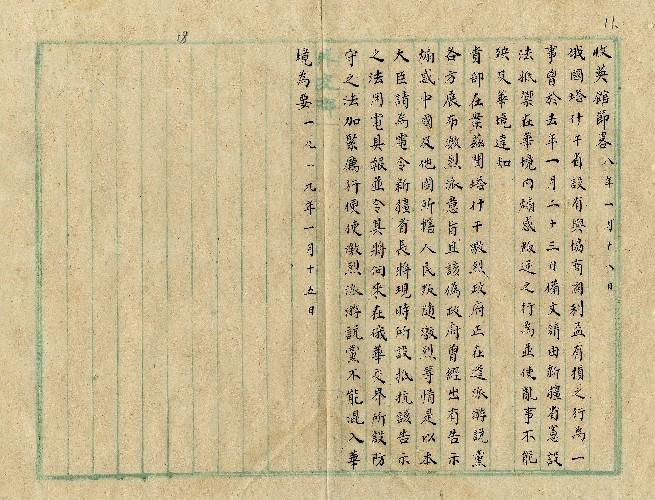 11
18
收英館節畧 八年一月十八日
俄國塔什干省設有與協商商利益有損之行為一
事曾於去年一月二十三日備文請由新疆省憲設
法抵禦在華境內煽惑叛逆之行為並使亂事不能
殃及華境違知
貴部在案茲聞塔什干激烈政府正在選派游說黨
各方展布激烈派意旨且該偽政府曾經出有告示
煽惑中國及他國所轄人民叛隨激烈等情是以本
大臣請為電令新疆省長將現時所設抵抗該告示
之法用電具報並令其將向來在俄華交界所設防
守之法加緊厲行使使激烈派游說黨不能混入華
境為要 一九一九年一月十五日
外交部